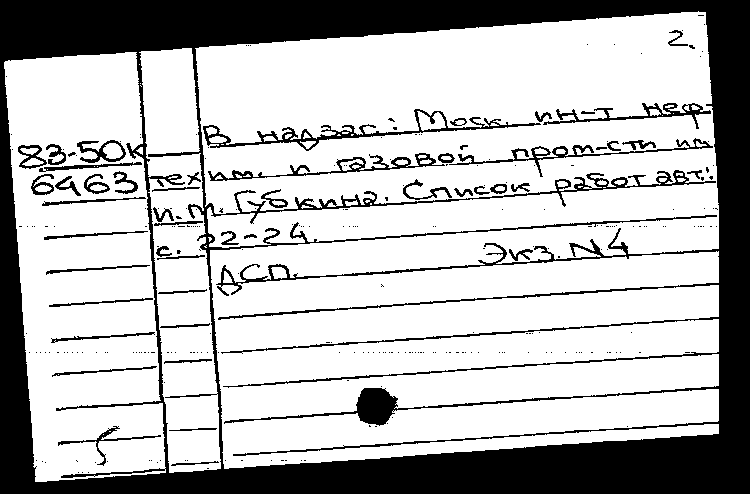 2.
83-50к
6463
В надзаг.: Моск. ин-т неф-
техим. и газовой пром-сти им.
и.м. Губкина. Список работ авт.:
с. 22-24.
ДСП. Экз. N4